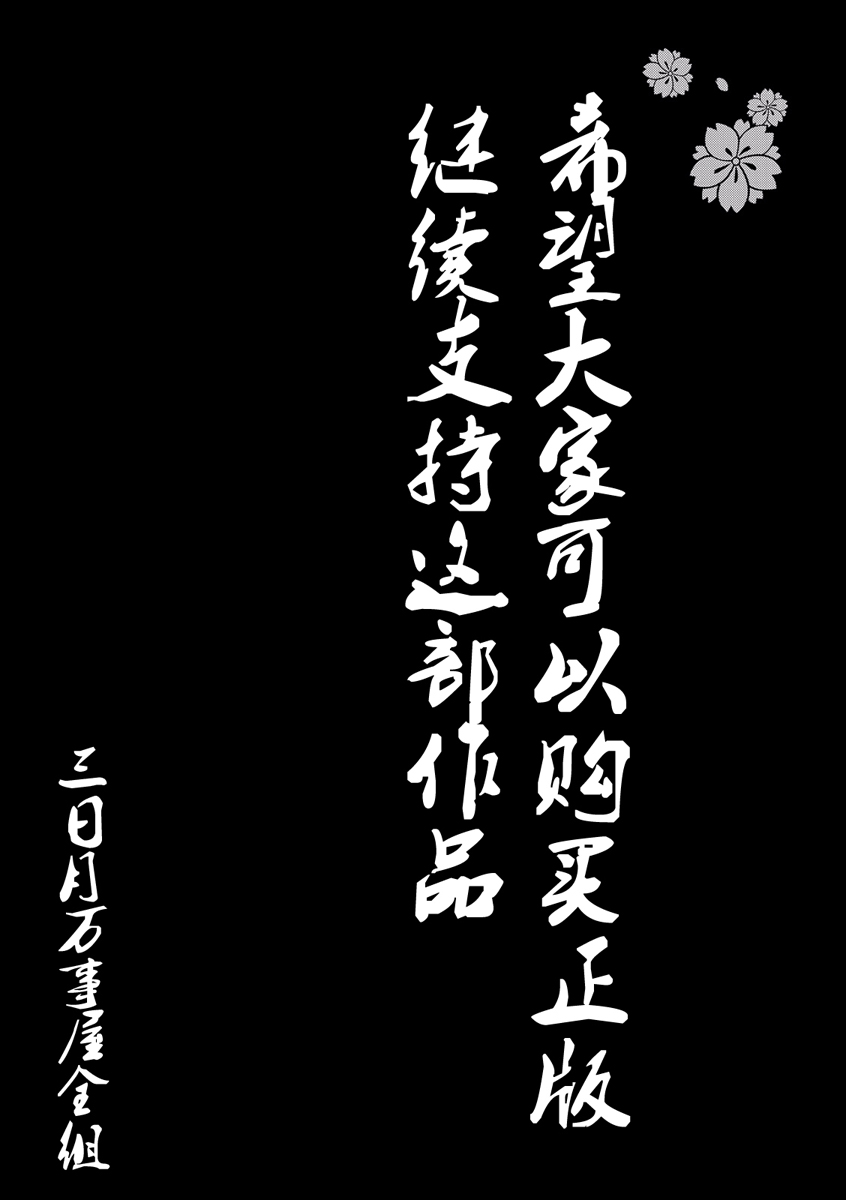 希望大家可以购买正版
继续支持这部作品
三日月万事屋全组